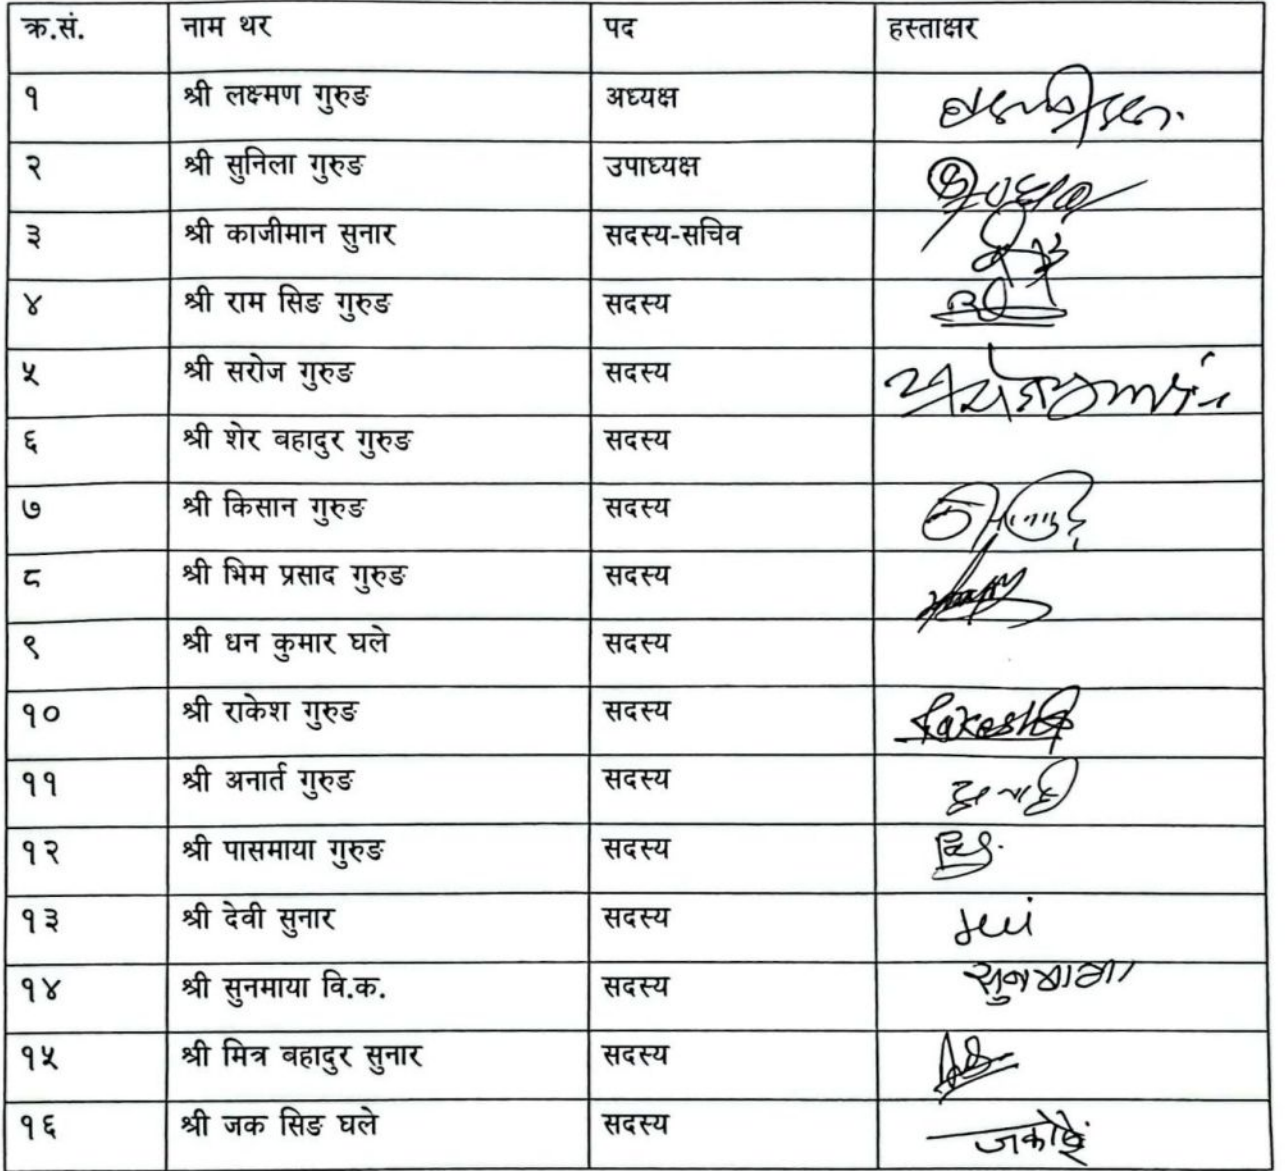 क्र.सं. नाम थर पद हस्ताक्षर
१ श्री लक्ष्मण गुरुङ अध्यक्ष
२ श्री सुनिला गुरुङ उपाध्यक्ष
३ श्री काजीमान सुनार सदस्य-सचिव
४ श्री राम सिङ गुरुङ सदस्य
५ श्री सरोज गुरुङ सदस्य
६ श्री शेर बहादुर गुरुङ सदस्य
७ श्री किसान गुरुङ सदस्य
८ श्री भिम प्रसाद गुरुङ सदस्य
९ श्री धन कुमार घले सदस्य
१० श्री राकेश गुरुङ सदस्य Rakesh
११ श्री अनार्त गुरुङ सदस्य
१२ श्री पासमाया गुरुङ सदस्य
१३ श्री देवी सुनार सदस्य
१४ श्री सुनमाया वि.क. सदस्य सुनमाया
१५ श्री मित्र बहादुर सुनार सदस्य
१६ श्री जक सिङ घले सदस्य